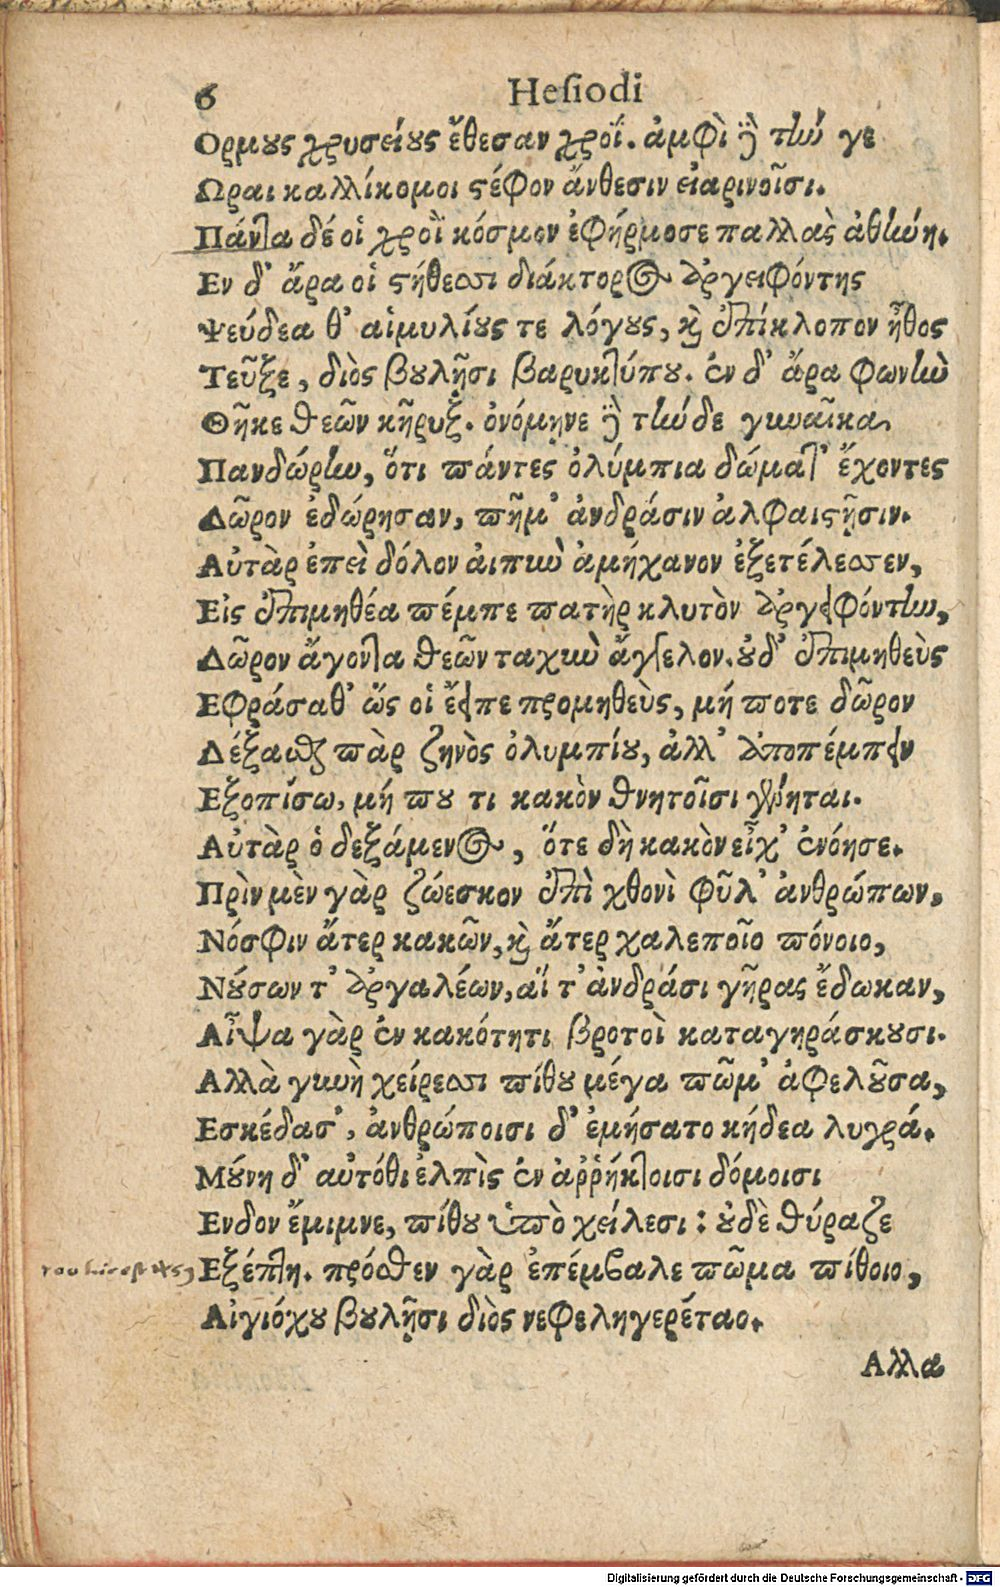 6 Hesiodi
Ορμους χρυσείους ἔθεσαν χροΐ. ἀμφὶ δὲ τήν γε
Ωραι καλλίκομοι στέφον ἄνθεσιν εἰαρινοῖσι.
Πάντα δέ οἱ χροῒ κόσμον ἐφήρμοσε παλλὰς ἀθήνη.
Εν δ' ἄρα οἱ στήθεσσι διάκτορος ἀργειφόντης
Ψεύδεα θ' αἱμυλίους τε λόγους, καὶ ἐπίκλοπον ἦθος
Τεῦξε, διὸς βουλῇσι βαρυκτύπου. ἐν δ' ἄρα φωνὴν
Θῆκε θεῶν κῆρυξ. ὀνόμηνε δὲ τήνδε γυναῖκα
Πανδώρην, ὅτι πάντες ὀλύμπια δώματ' ἔχοντες
Δῶρον ἐδώρησαν, πῆμ' ἀνδράσιν ἀλφαιστῇσιν.
Αὐτὰρ ἐπεὶ δόλον ἀιπὺν ἀμήχανον ἐξετέλεσσεν,
Εἰς ἐπιμηθέα πέμπε πατὴρ κλυτὸν ἀργειφόντην,
Δῶρον ἄγοντα θεῶν ταχὺν ἄγγελον. οὐδ' ἐπιμηθεὺς
Εφράσαθ' ὥς οἱ ἔειπε προμηθεὺς, μή ποτε δῶρον
Δέξασθαι πὰρ ζηνὸς ὀλυμπίου, ἀλλ' ἀποπέμπειν
Εξοπίσω, μή που τι κακὸν θνητοῖσι γένηται.
Αὐτὰρ ὁ δεξάμενος, ὅτε δὴ κακὸν εἶχ' ἐνόησε.
Πρὶν μὲν γὰρ ζώεσκον ἐπὶ χθονὶ φῦλ' ἀνθρώπων,
Νόσφιν ἄτερ κακῶν, καὶ ἄτερ χαλεποῖο πόνοιο,
Νούσων τ' ἀργαλέων, αἵ τ' ἀνδράσι γῆρας ἔδωκαν,
Αἶψα γὰρ ἐν κακότητι βροτοὶ καταγηράσκουσι.
Αλλὰ γυνὴ χείρεσσι πίθου μέγα πῶμ' ἀφελοῦσα,
Εσκέδασ', ἀνθρώποισι δ' ἐμήσατο κήδεα λυγρά.
Μούνη δ' αὐτόθι ἐλπὶς ἐν ἀῤῥήκτοισι δόμοισι
Ενδον ἔμιμνε, πίθου ὑπὸ χείλεσι: οὐδὲ θύραζε
Εξέπτη. πρόσθεν γὰρ ἐπέμβαλε πῶμα πίθοιο,
Αἰγιόχου βουλῇσι διὸς νεφεληγερέταο.
Αλλα
Digitalisierung gefördert durch die Deutsche Forschungsgemeinschaft - DFG